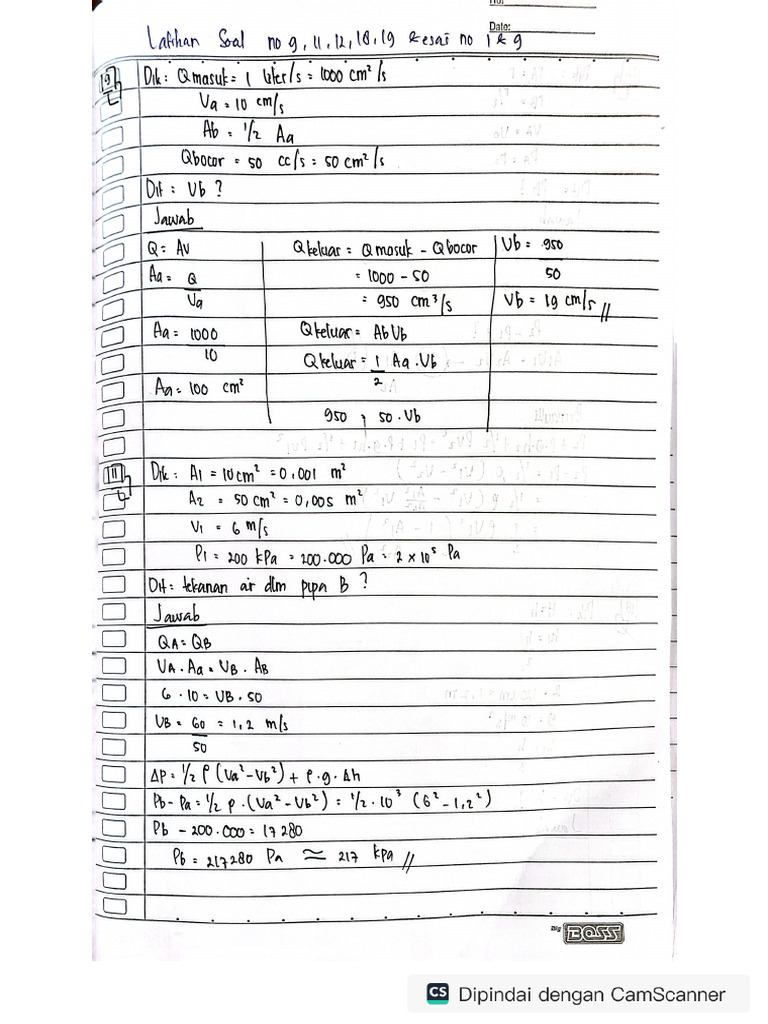 No:
Date:
Latihan Soal no 9, 11, 12, 18, 19 & esai no 1 & 9
9
Dik : Q masuk = 1 liter/s = 1000 cm²/s
Va = 10 cm/s
Ab = 1/2 Aa
Qbocor = 50 cc/s = 50 cm²/s
Dit : Vb ?
Jawab
Q = Av
Aa = Q
Va
Aa = 1000
10
Aa = 100 cm²
Q keluar = Q masuk - Q bocor
= 1000 - 50
= 950 cm³/s
Q keluar = Ab Vb
Q keluar = 1 Aa . Vb
2
950 , 50 . Vb
Vb = 950
50
Vb = 19 cm/s //
11
Dik : A1 = 10 cm² = 0,001 m²
A2 = 50 cm² = 0,005 m²
V1 = 6 m/s
P1 = 200 kPa = 200.000 Pa = 2 x 10⁵ Pa
Dit = tekanan air dlm pipa B ?
Jawab
QA = QB
VA . Aa = VB . AB
6 . 10 = VB . 50
VB = 60 = 1,2 m/s
50
ΔP = 1/2 ρ (Va² - Vb²) + ρ . g . Δh
Pb - Pa = 1/2 ρ . (Va² - Vb²) = 1/2 . 10³ (6² - 1,2²)
Pb - 200.000 = 17280
Pb = 217280 Pa ≈ 217 kPa //
Big BOSS
CS Dipindai dengan CamScanner